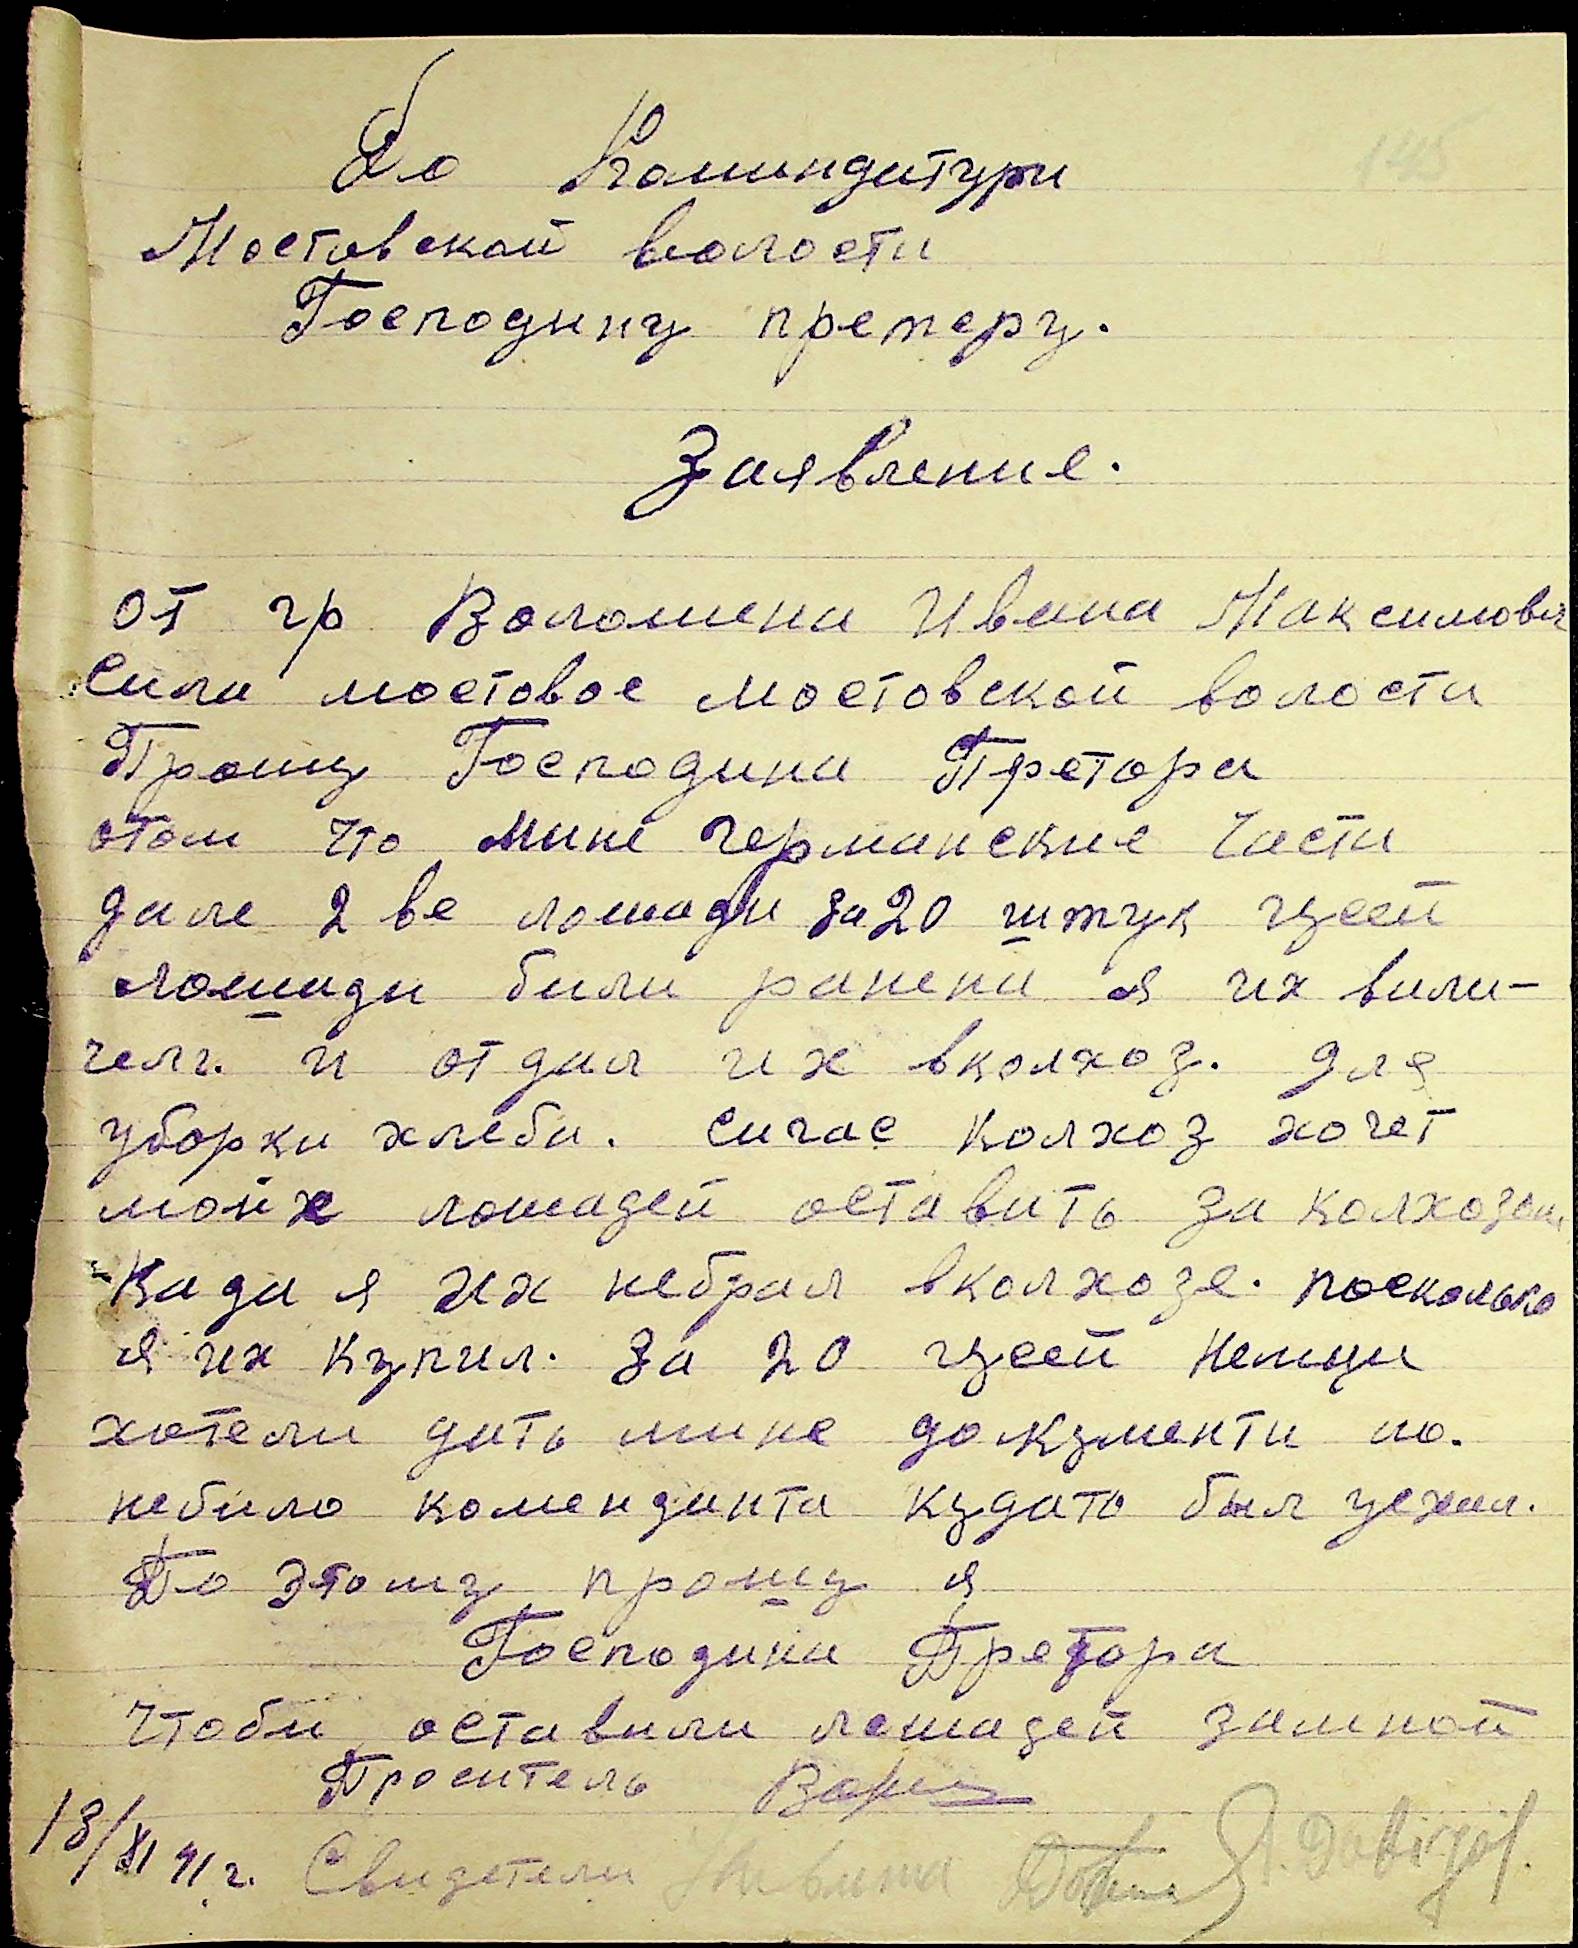 До Коминдатури
Мостовской волости
Господину претеру.
Заявление.
от гр Воломена Ивана Максимович
Сила мостовое мостовской волости
Прошу Господина Претора
отом что мине германские части
дале 2 ве лошади за 20 штук гусей
лошади били ранени я их вили-
чел. и отдал их вколхоз. для
уборки хлеба. сичас колхоз хочет
мойх лошадей оставить за колхозом
Када я их небрал вколхозе. посколько
я их купил. За 20 гусей Немци
хотели дать мине документи но.
небило коменданта кудато был уехал.
По этому прошу я
Господина Претора
Чтоби оставили лошадей замной
Проситель
13/XI 41 г. Свидетели